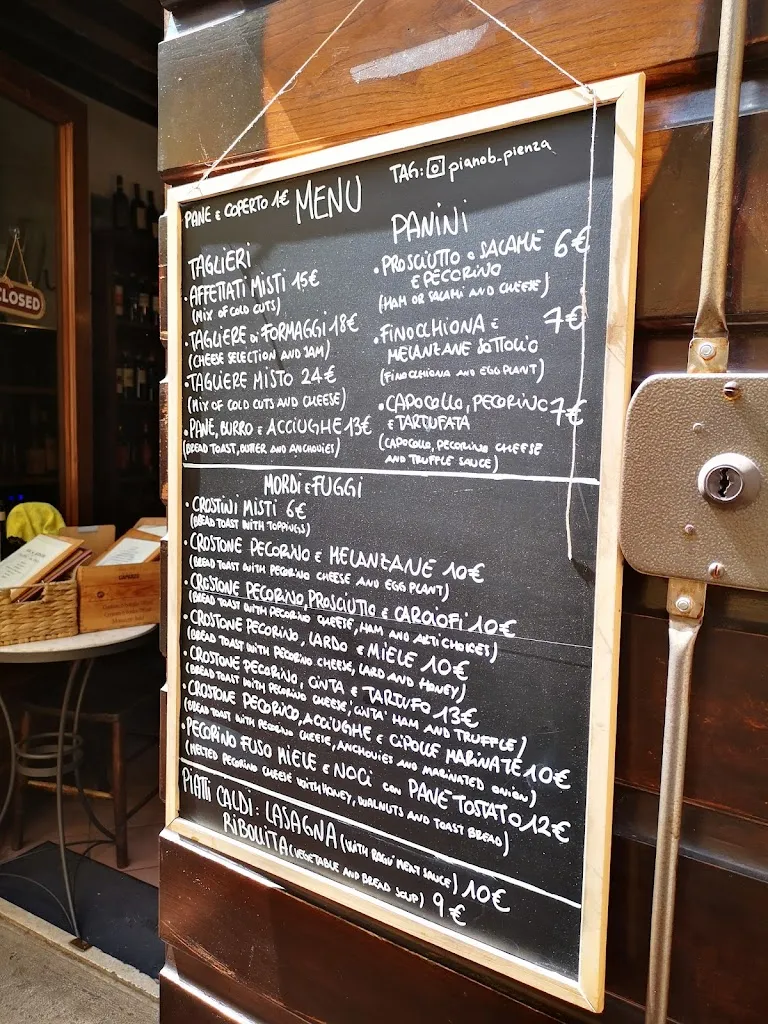 CLOSED
PANE E COPERTO 1€ MENU
TAG: pianob_pienza
TAGLIERI
• AFFETTATI MISTI 15€
(MIX OF COLD CUTS)
• TAGLIERE DI FORMAGGI 18€
(CHEESE SELECTION AND JAM)
• TAGLIERE MISTO 24€
(MIX OF COLD CUTS AND CHEESE)
• PANE, BURRO E ACCIUGHE 13€
(BREAD TOAST, BUTTER AND ANCHOVIES)
PANINI
• PROSCIUTTO O SALAME 6€
E PECORINO
(HAM OR SALAMI AND CHEESE)
• FINOCCHIONA E 7€
MELANZANE SOTTOLIO
(FINOCCHIONA AND EGG PLANT)
• CAPOCOLLO, PECORINO 7€
E TARTUFATA
(CAPOCOLLO, PECORINO CHEESE
AND TRUFFLE SAUCE)
MORDI E FUGGI
• CROSTINI MISTI 6€
(BREAD TOAST WITH TOPPINGS)
• CROSTONE PECORINO E MELANZANE 10€
(BREAD TOAST WITH PECORINO CHEESE AND EGG PLANT)
• CROSTONE PECORINO, PROSCIUTTO E CARCIOFI 10€
(BREAD TOAST WITH PECORINO CHEESE, HAM AND ARTICHOKES)
• CROSTONE PECORINO, LARDO E MIELE 10€
(BREAD TOAST WITH PECORINO CHEESE, LARD AND HONEY)
• CROSTONE PECORINO, CINTA E TARTUFO 13€
(BREAD TOAST WITH PECORINO CHEESE, 'CINTA' HAM AND TRUFFLE)
• CROSTONE PECORINO, ACCIUGHE E CIPOLLE MARINATE 10€
(BREAD TOAST WITH PECORINO CHEESE, ANCHOVIES AND MARINATED ONION)
• PECORINO FUSO MIELE E NOCI CON PANE TOSTATO 12€
(MELTED PECORINO CHEESE WITH HONEY, WALNUTS AND TOAST BREAD)
PIATTI CALDI: LASAGNA (WITH RAGU' MEAT SAUCE) 10€
RIBOLLITA (VEGETABLE AND BREAD SOUP) 9€